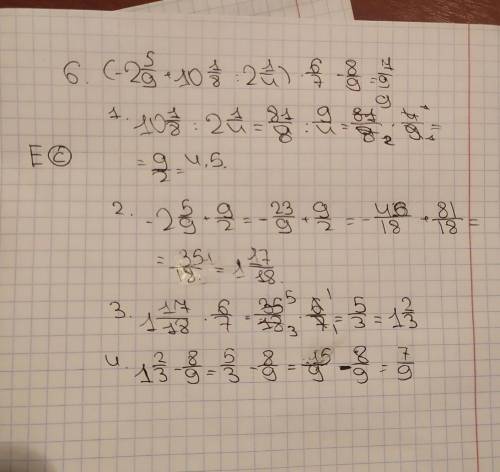 6. (-2 5/9 + 10 1/8 : 2 1/4) · 6/7 - 8/9 = 7/9
1. 10 1/8 : 2 1/4 = 81/8 : 9/4 = 81/8 2 · 4 1/9 1 =
= 9/2 = 4,5.
E C
2. -2 5/9 + 9/2 = -23/9 + 9/2 = -46/18 + 81/18 =
= 35/18 = 1 17/18.
3. 1 17/18 · 6/7 = 35 5/18 3 · 6 1/7 1 = 5/3 = 1 2/3
4. 1 2/3 - 8/9 = 5/3 - 8/9 = 15/9 - 8/9 = 7/9